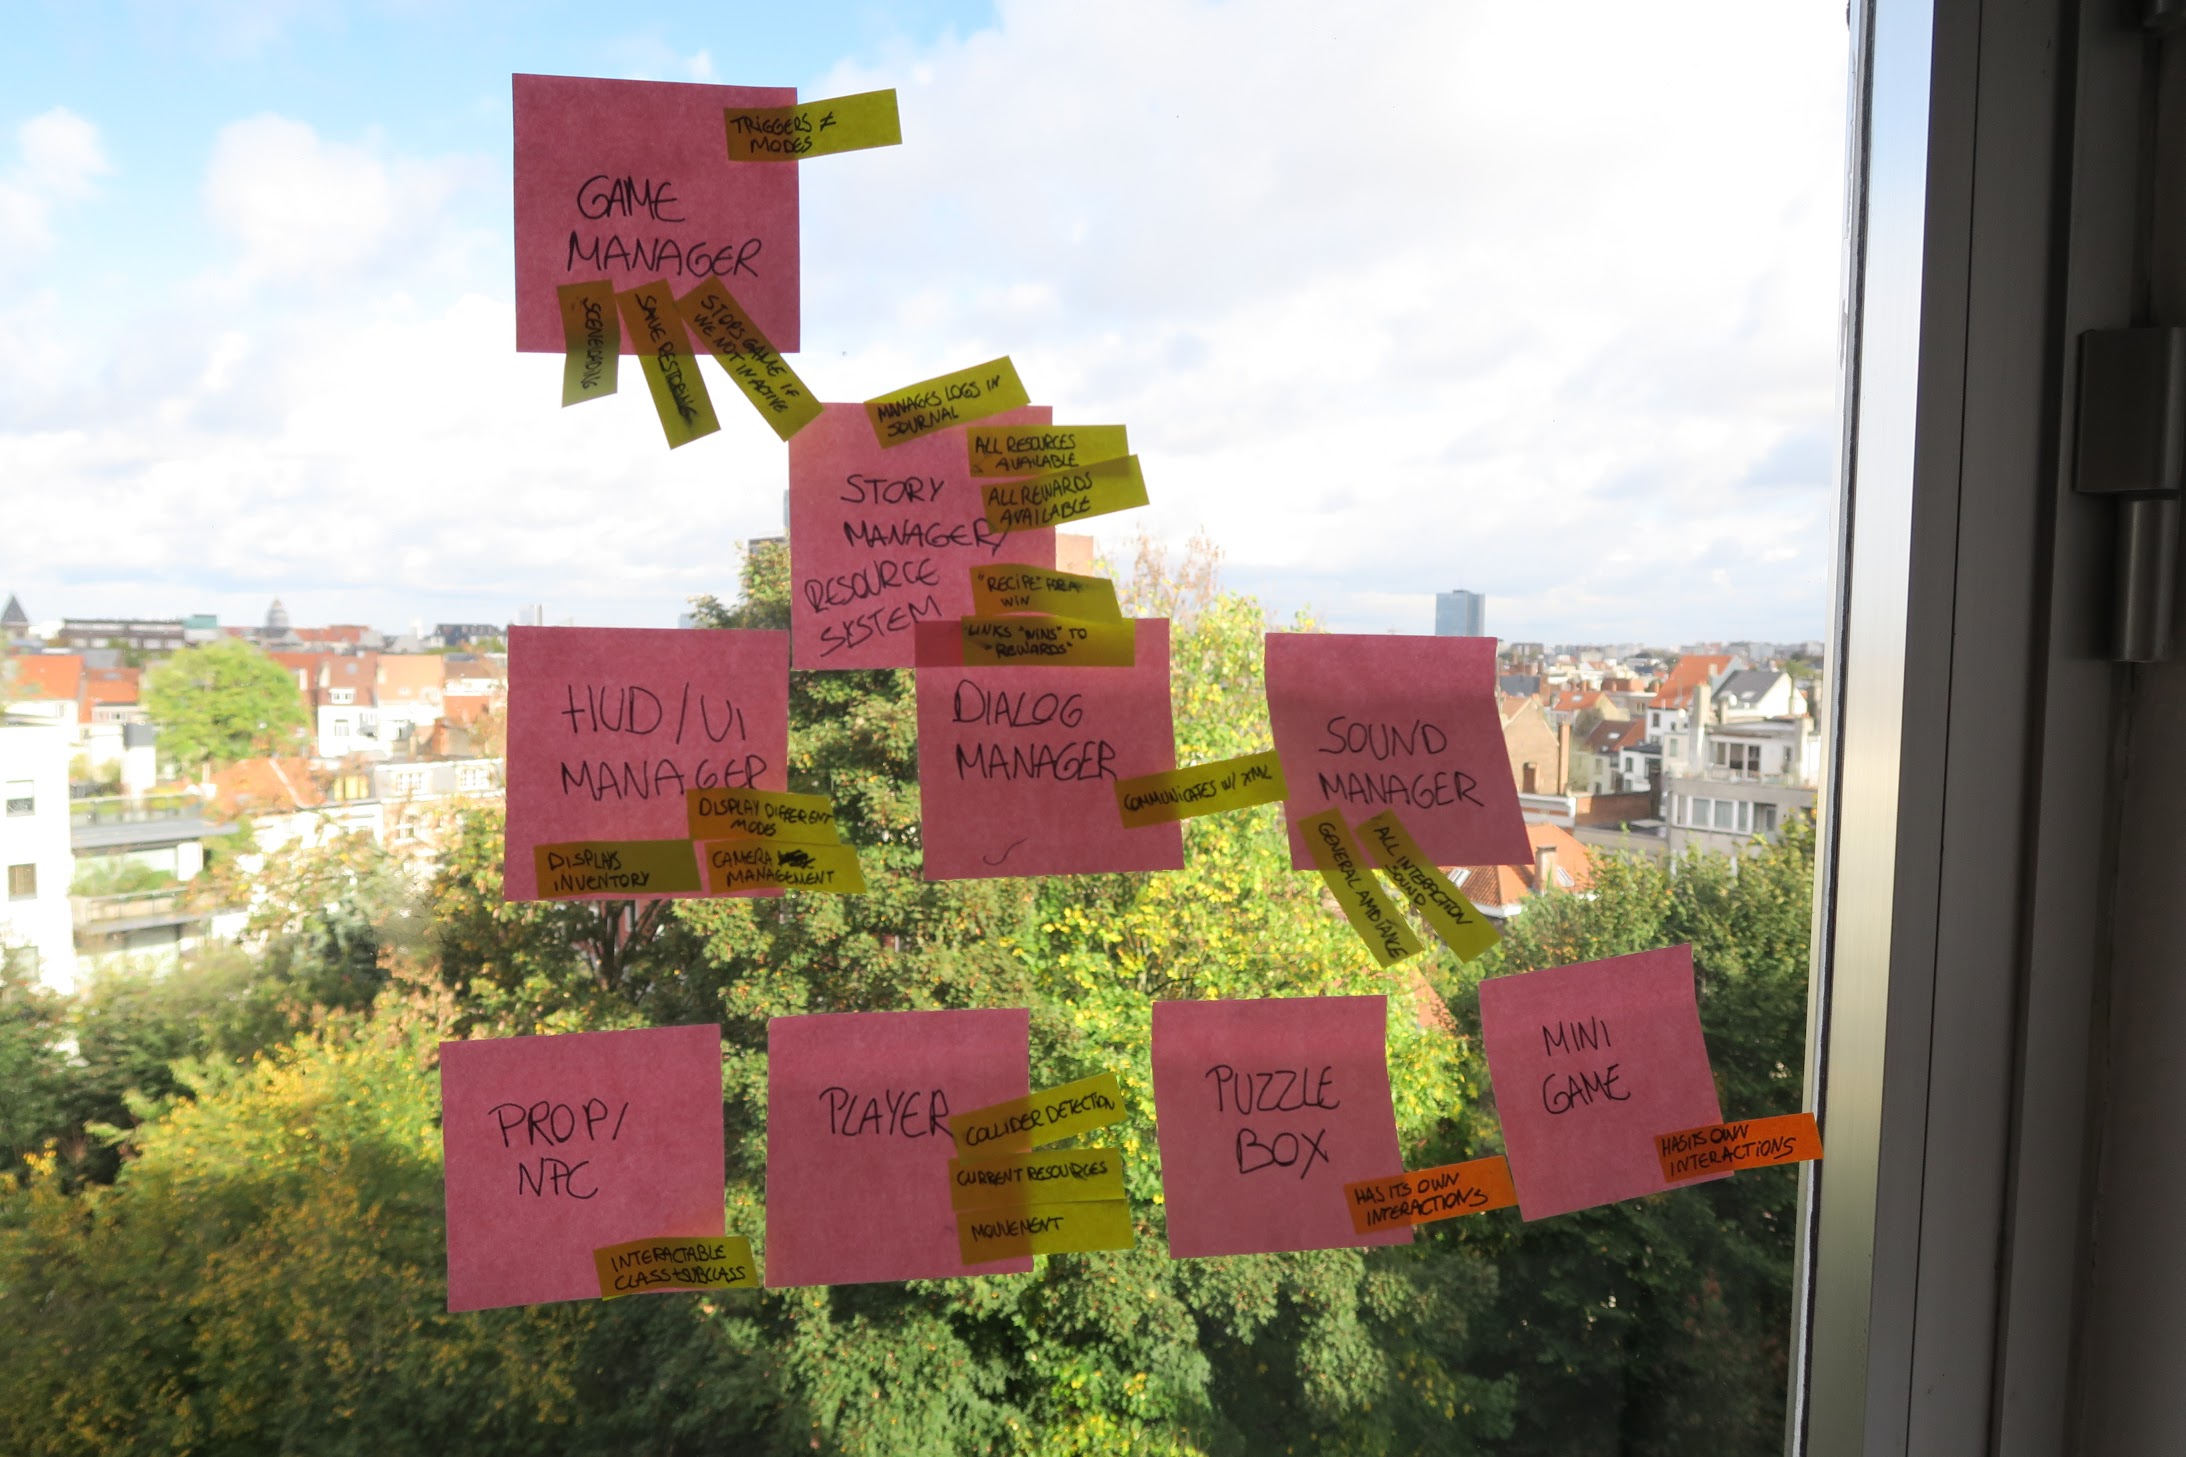 TRIGGERS ≠
MODES
GAME
MANAGER
SCENELOADING
SAVE RESTORING
STOPS GAME IF
WE NOT IN ACTIVE
MANAGES LOGS IN
JOURNAL
ALL RESOURCES
AVAILABLE
ALL REWARDS
AVAILABLE
STORY
MANAGER/
RESOURCE
SYSTEM
"RECIPE" FOR A
WIN
LINKS "WINS" TO
"REWARDS"
HUD/UI
MANAGER
DISPLAY DIFFERENT
MODES
DISPLAYS
INVENTORY
CAMERA
MANAGEMENT
DIALOG
MANAGER
COMMUNICATES W/ XML
SOUND
MANAGER
GENERAL AMBIANCE
ALL INTERACTION
SOUND
PROP/
NPC
INTERACTABLE
CLASS+SUBCLASS
PLAYER
COLLIDER DETECTION
CURRENT RESOURCES
MOUVEMENT
PUZZLE
BOX
HAS ITS OWN
INTERACTIONS
MINI
GAME
HAS ITS OWN
INTERACTIONS